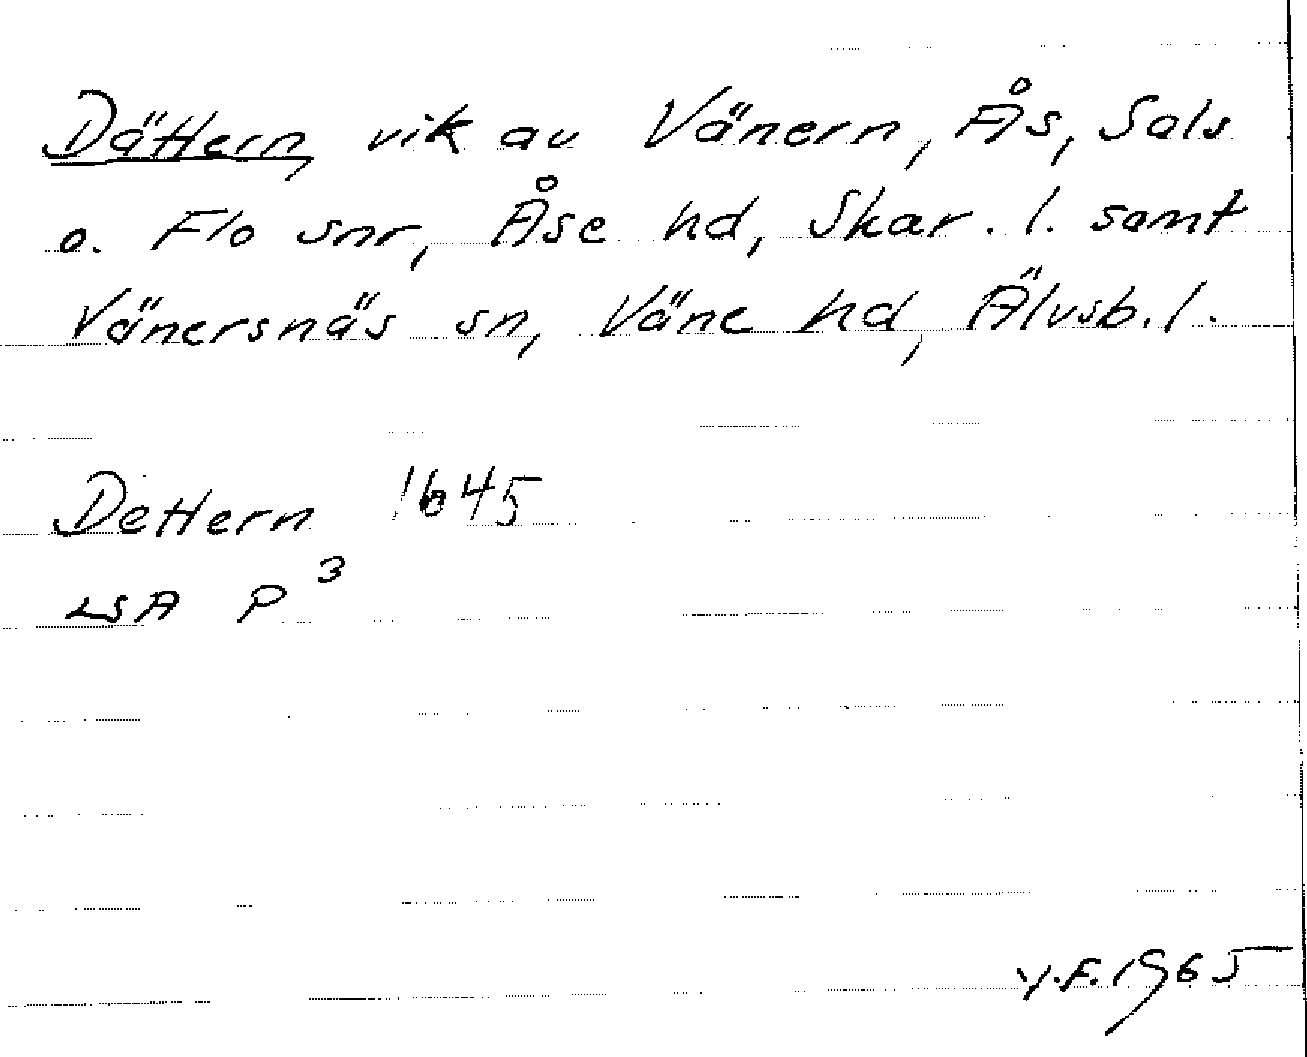 Dättern, vik av Vänern, Ås, Sals
o. Flo snr, Åse hd, Skar. l. samt
Vänersnäs sn, Väne hd, Älvsb. l.
Dettern 1645
LSA P³
Y.F. 1965